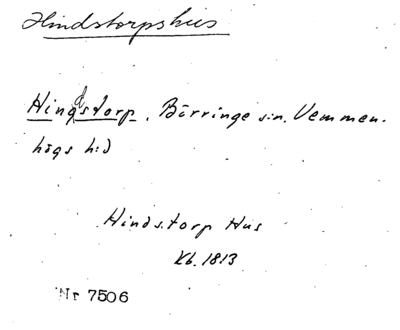 Hindstorpshus
Hindstorp, Börringe sn. Vemmen-
högs hd
Hindstorp Hus
Kb. 1813
Nr 7506